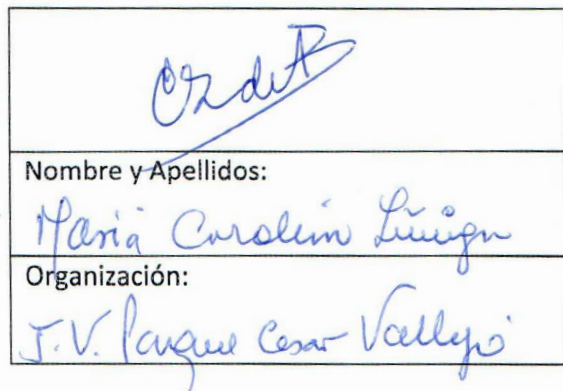 Nombre y Apellidos:
Maria Carolin
Organización:
J.V. Parque Cesar Vallejo